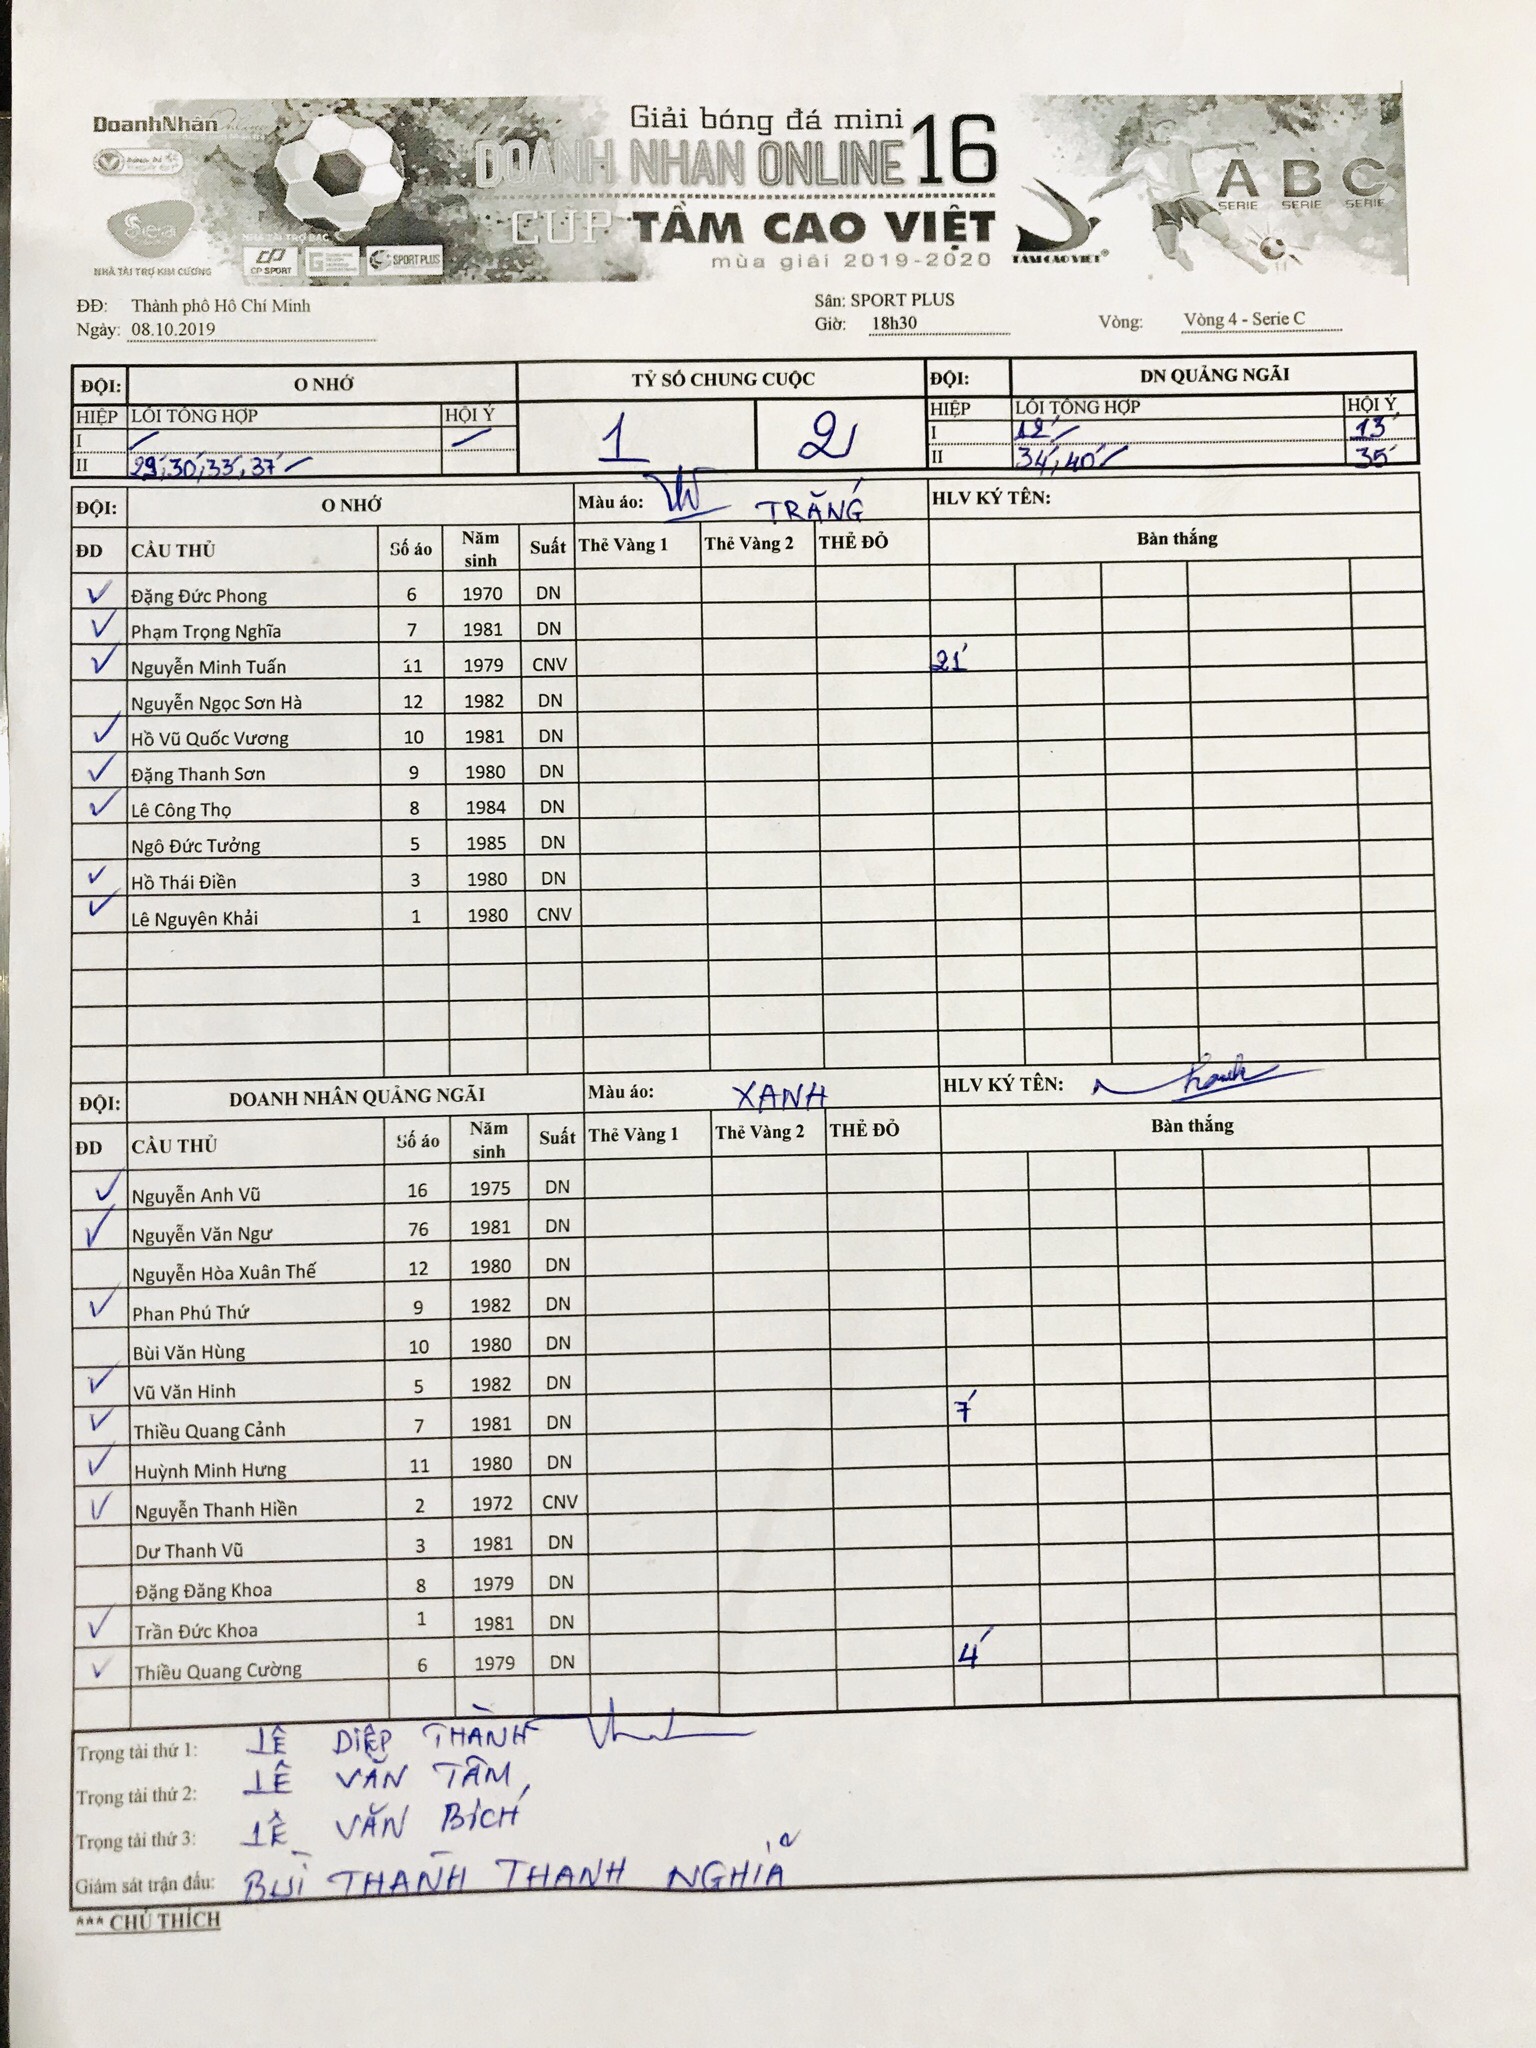 DoanhNhân Online
Giải bóng đá mini
DOANH NHAN ONLINE 16
CÚP TẦM CAO VIỆT
mùa giải 2019-2020
Sea
NHÀ TÀI TRỢ KIM CƯƠNG
NHÀ TÀI TRỢ BẠC
CP SPORT
SPORT PLUS
TẦM CAO VIỆT®
A SERIE B SERIE C SERIE
ĐĐ: Thành phô Hô Chí Minh
Sân: SPORT PLUS
Ngày: 08.10.2019
Giờ: 18h30
Vòng: Vòng 4 - Serie C
ĐỘI: O NHỚ TỶ SỐ CHUNG CUỘC ĐỘI: DN QUẢNG NGÃI
HIỆP LỖI TỔNG HỢP HỘI Ý 1 2 HIỆP LỖI TỔNG HỢP HỘI Ý
I I 12' 13'
II 29', 30', 33', 37' II 34', 40' 35'
ĐỘI: O NHỚ Màu áo: TRẮNG HLV KÝ TÊN:
ĐD CẦU THỦ Số áo Năm sinh Suất Thẻ Vàng 1 Thẻ Vàng 2 THẺ ĐỎ Bàn thắng
✓ Đặng Đức Phong 6 1970 DN
✓ Phạm Trọng Nghĩa 7 1981 DN
✓ Nguyễn Minh Tuấn 11 1979 CNV 21'
Nguyễn Ngọc Sơn Hà 12 1982 DN
✓ Hồ Vũ Quốc Vương 10 1981 DN
✓ Đặng Thanh Sơn 9 1980 DN
✓ Lê Công Thọ 8 1984 DN
Ngô Đức Tưởng 5 1985 DN
✓ Hồ Thái Điền 3 1980 DN
✓ Lê Nguyên Khải 1 1980 CNV
ĐỘI: DOANH NHÂN QUẢNG NGÃI Màu áo: XANH HLV KÝ TÊN:
ĐD CẦU THỦ Số áo Năm sinh Suất Thẻ Vàng 1 Thẻ Vàng 2 THẺ ĐỎ Bàn thắng
✓ Nguyễn Anh Vũ 16 1975 DN
✓ Nguyễn Văn Ngư 76 1981 DN
Nguyễn Hòa Xuân Thế 12 1980 DN
✓ Phan Phú Thứ 9 1982 DN
Bùi Văn Hùng 10 1980 DN
✓ Vũ Văn Hinh 5 1982 DN
✓ Thiều Quang Cảnh 7 1981 DN 7'
✓ Huỳnh Minh Hưng 11 1980 DN
✓ Nguyễn Thanh Hiền 2 1972 CNV
Dư Thanh Vũ 3 1981 DN
Đặng Đăng Khoa 8 1979 DN
✓ Trần Đức Khoa 1 1981 DN
✓ Thiều Quang Cường 6 1979 DN 4'
Trọng tài thứ 1: LÊ DIỆP THÀNH
Trọng tài thứ 2: LÊ VĂN TÂM
Trọng tài thứ 3: LÊ VĂN BÍCH
Giám sát trận đấu: BÙI THANH THANH NGHĨA
*** CHÚ THÍCH